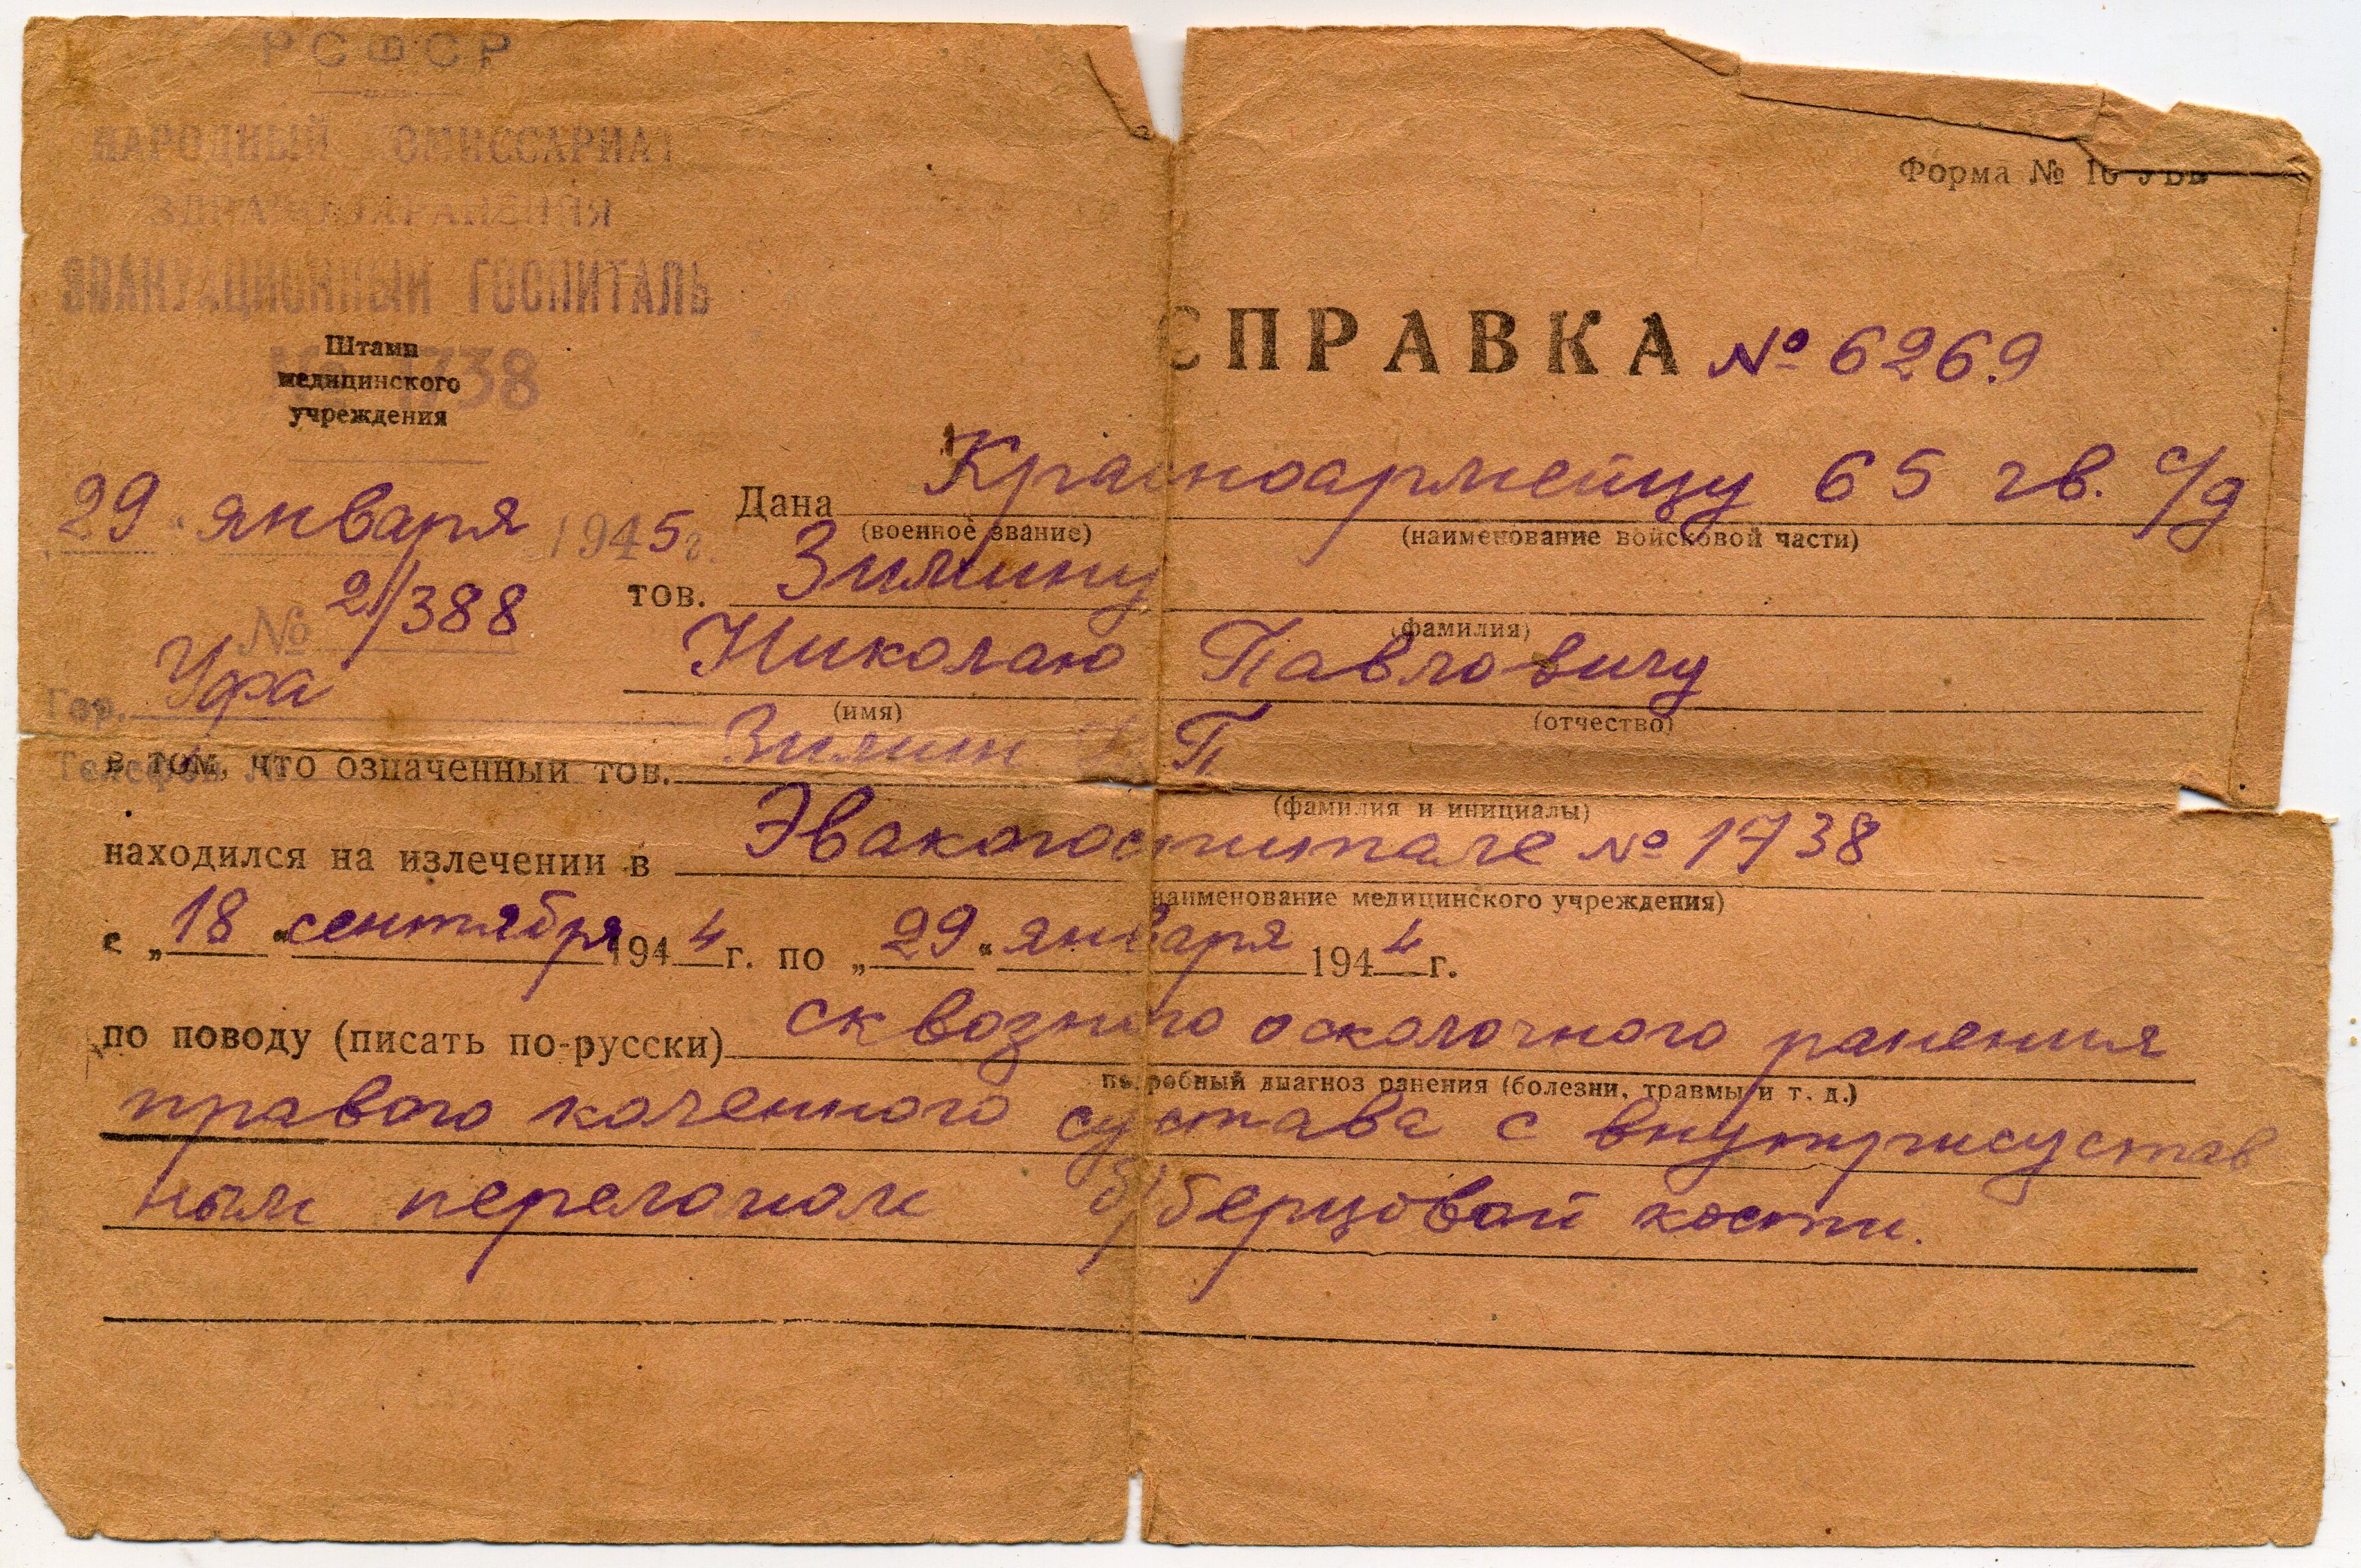 РСФСР
НАРОДНЫЙ КОМИССАРИАТ
ЗДРАВООХРАНЕНИЯ
ЭВАКУАЦИОННЫЙ ГОСПИТАЛЬ
№ 1738
Штамп
медицинского
учреждения
Форма № 16
СПРАВКА № 6269
29 " января 1945 г.
№ 21/388
Гор. Уфа
Телефон №
Дана Красноармейцу 65 гв. с/д
(военное звание) (наименование войсковой части)
тов. Зимину
(фамилия)
Николаю Павловичу
(имя) (отчество)
в том, что означенный тов. Зимин Н. П
(фамилия и инициалы)
находился на излечении в Эвакогоспитале № 1738
(наименование медицинского учреждения)
с „18 “ сентября 1944 г. по „29 “ января 1944 г.
по поводу (писать по-русски) сквозного осколочного ранения
подробный диагноз ранения (болезни, травмы и т. д.)
правого коленного сустава с внутрисустав
ным переломом б/берцовой кости.